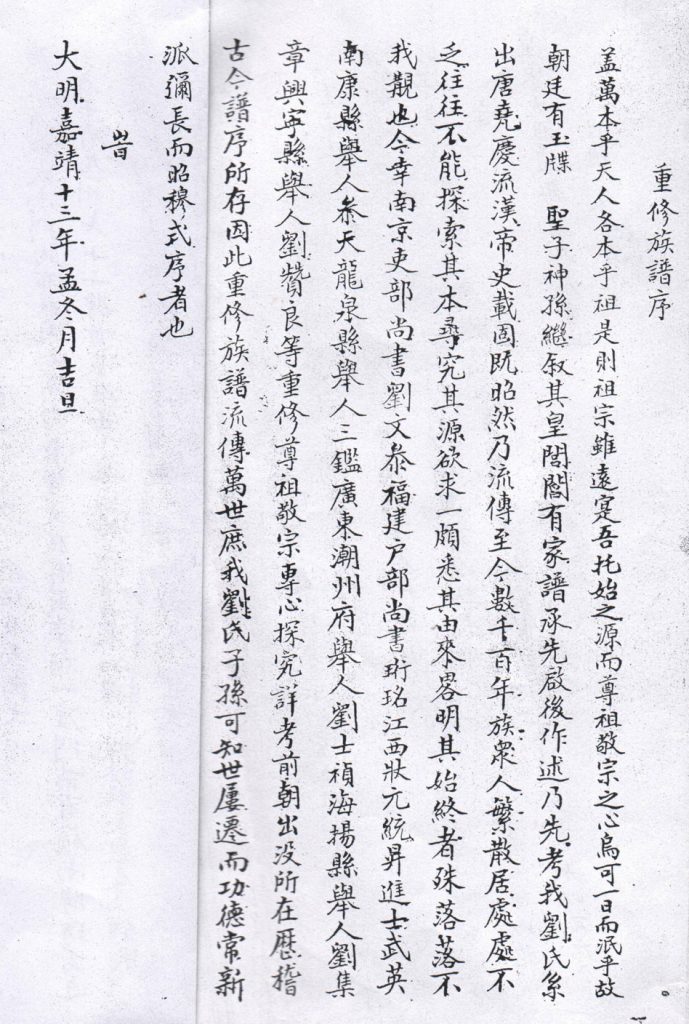 重修族譜序
盖萬本乎天人各本乎祖是則祖宗雖遠寔吾托始之源而尊祖敬宗之心烏可一日而泯乎故
朝廷有玉牒 聖子神孫繼叙其皇閭閻有家譜承先啟後作述乃先考我劉氏系
出唐堯慶流漢帝史載固既昭然乃流傳至今數千百年族衆人繁散居處處不
乏往往不能探索其本尋究其源欲求一頗悉其由來畧明其始終者殊落落不
我觀也今幸南京吏部尚書劉文恭福建户部尚書珩珆江西狀元統昇進士武英
南康縣舉人叅天龍泉縣舉人三鑑廣東潮州府舉人劉士禎海揚縣舉人劉集
章興寧縣舉人劉贊良等重修尊祖敬宗專心探究詳考前朝出没所在歷稽
古今譜序所存因此重修族譜流傳萬世庶我劉氏子孫可知世屢遷而功德常新
派彌長而昭穆式序者也
旹
大明嘉靖十三年孟冬月吉旦